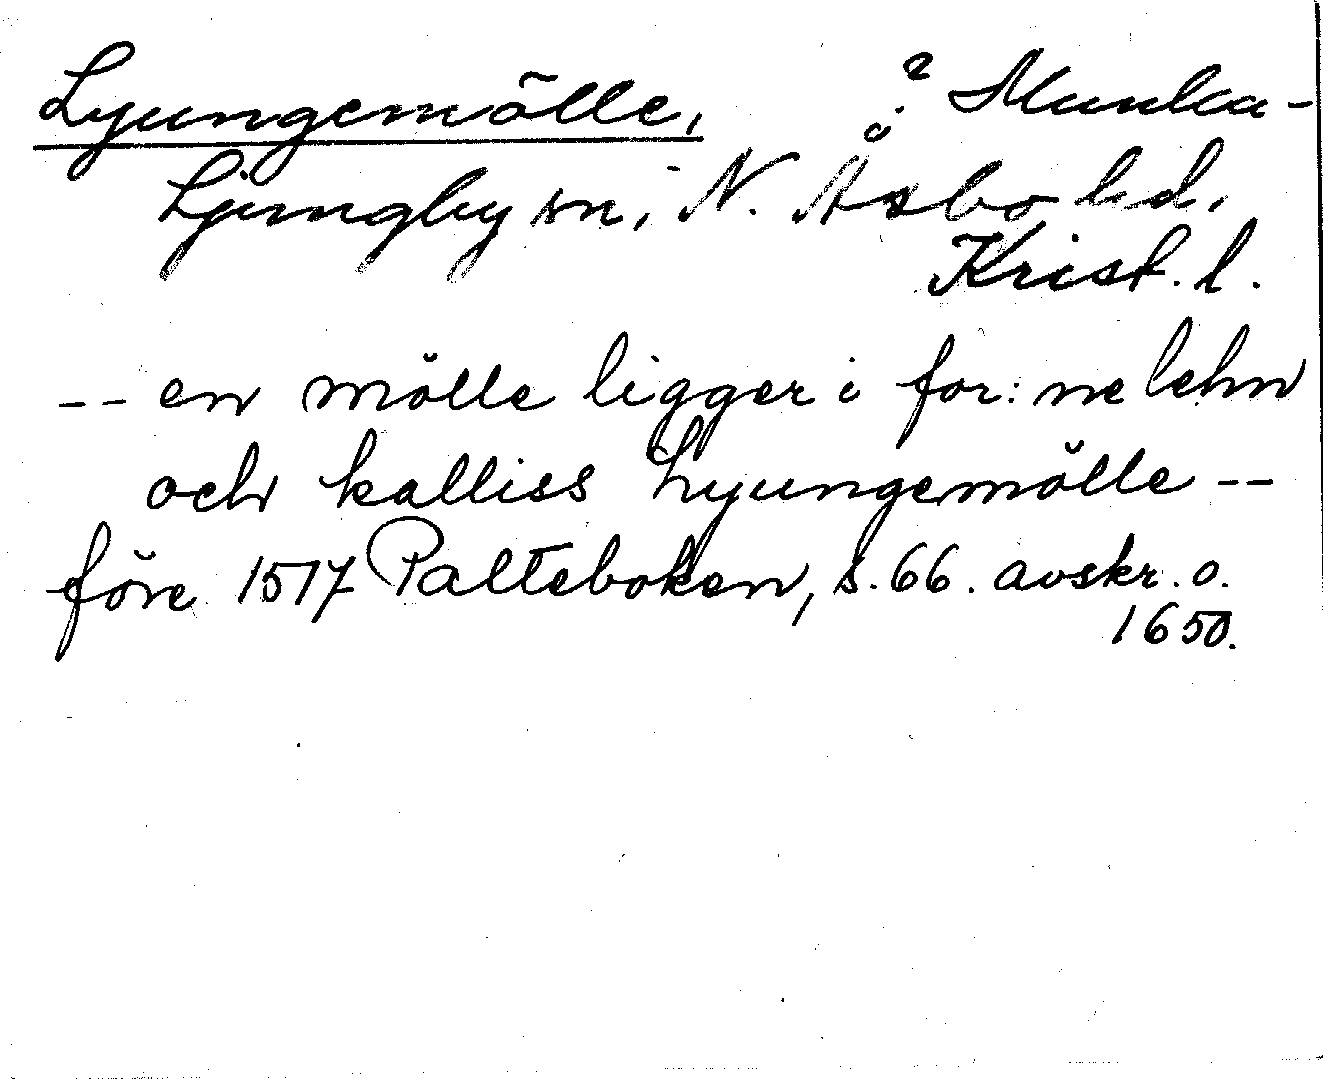 Lyungemölle, ? Munka-
Ljungby sn, N. Åsbo hd,
Krist. l.
-- en mölle ligger i for: ne lehn
och kalliss Lyungemölle --
före 1517 Palteboken, s. 66. avskr. o.
1650.